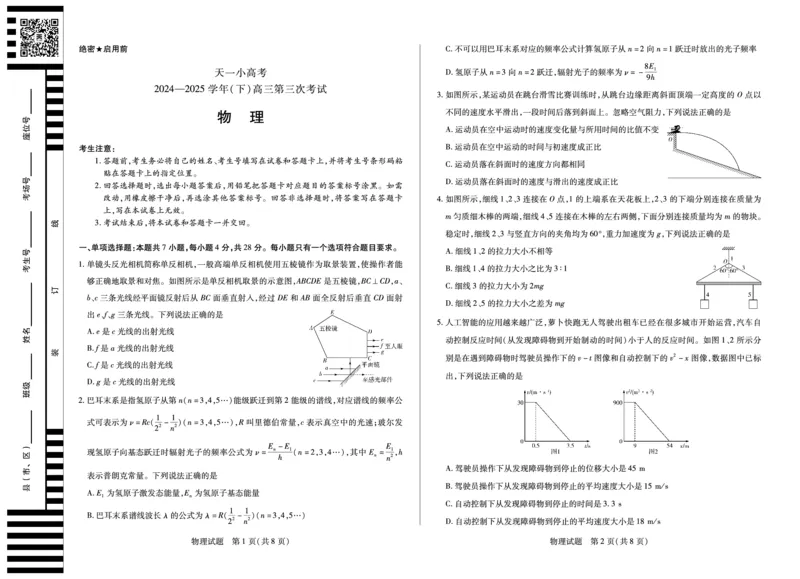 绝密★启用前
天一小高考
2024—2025学年(下)高三第三次考试
物 理
考生注意:
1. 答题前,考生务必将自己的姓名、考生号填写在试卷和答题卡上,并将考生号条形码粘
贴在答题卡上的指定位置。
2. 回答选择题时,选出每小题答案后,用铅笔把答题卡对应题目的答案标号涂黑。如需
改动,用橡皮擦干净后,再选涂其他答案标号。回答非选择题时,将答案写在答题卡
上,写在本试卷上无效。
3. 考试结束后,将本试卷和答题卡一并交回。
一、单项选择题:本题共7小题,每小题4分,共28分。每小题只有一个选项符合题目要求。
1. 单镜头反光相机简称单反相机,一般高端单反相机使用五棱镜作为取景装置,使操作者能
够正确地取景和对焦。如图所示是单反相机取景的示意图,ABCDE是五棱镜,BC⊥CD,a、
b、c三条光线经平面镜反射后从BC面垂直射入,经过DE和AB面全反射后垂直CD面射
出e、f、g三条光线。下列说法正确的是
A. e是c光线的出射光线
B. f是a光线的出射光线
C. f是c光线的出射光线
D. g是c光线的出射光线
E
A 五棱镜 D
e
f 至人眼
g
B C
a 平面镜
b
c M 感光部件
2. 巴耳末系是指氢原子从第n(n=3,4,5⋯)能级跃迁到第2能级的谱线,对应谱线的频率公
式可表示为ν=Rc(1/2²−1/n²)(n=3,4,5⋯),R叫里德伯常量,c表示真空中的光速;玻尔发
现氢原子向基态跃迁时辐射光子的频率公式为ν=(Eₙ−E₁)/h(n=2,3,4⋯),其中Eₙ=E₁/n²,h
表示普朗克常量。下列说法正确的是
A. E₁为氢原子激发态能量,Eₙ为氢原子基态能量
B. 巴耳末系谱线波长λ的公式为λ=R(1/2²−1/n²)(n=3,4,5⋯)
物理试题 第1页(共8页)
C. 不可以用巴耳末系对应的频率公式计算氢原子从n=2向n=1跃迁时放出的光子频率
D. 氢原子从n=3向n=2跃迁,辐射光子的频率为ν=−8E₁/9h
3. 如图所示,某运动员在跳台滑雪比赛训练时,从跳台边缘距离斜面顶端一定高度的O点以
不同的速度水平滑出,一段时间后落到斜面上。忽略空气阻力,下列说法正确的是
A. 运动员在空中运动时的速度变化量与所用时间的比值不变
B. 运动员在空中运动的时间与初速度成正比
C. 运动员落在斜面时的速度方向都相同
D. 运动员落在斜面时的速度与滑出的速度成正比
O
4. 如图所示,细线1、2、3连接在O点,1的上端系在天花板上,2、3的下端分别连接在质量为
m匀质细木棒的两端,细线4、5连接在木棒的左右两侧,下面分别连接质量均为m的物块。
稳定时,细线2、3与竖直方向的夹角均为60°,重力加速度为g,下列说法正确的是
A. 细线1、2的拉力大小不相等
B. 细线1、4的拉力大小之比为3∶1
C. 细线3的拉力大小为2mg
D. 细线2、5的拉力大小之差为mg
O 1
2 60° 60° 3
4 5
5. 人工智能的应用越来越广泛,萝卜快跑无人驾驶出租车已经在很多城市开始运营,汽车自
动控制反应时间(从发现障碍物到开始制动的时间)小于人的反应时间。如图1、2所示分
别是在遇到障碍物时驾驶员操作下的v−t图像和自动控制下的v²−x图像,数据图中已标
出,下列说法正确的是
v/(m·s⁻¹)
30
0 0.5 3.5 t/s
图1
v²/(m²·s⁻²)
900
0 9 54 x/m
图2
A. 驾驶员操作下从发现障碍物到停止的位移大小是45 m
B. 驾驶员操作下从发现障碍物到停止的平均速度大小是15 m/s
C. 自动控制下从发现障碍物到停止的时间是3.3 s
D. 自动控制下从发现障碍物到停止的平均速度大小是18 m/s
物理试题 第2页(共8页)
座位号
考场号
考生号
姓名
班级
县(市、区)
线
订
装